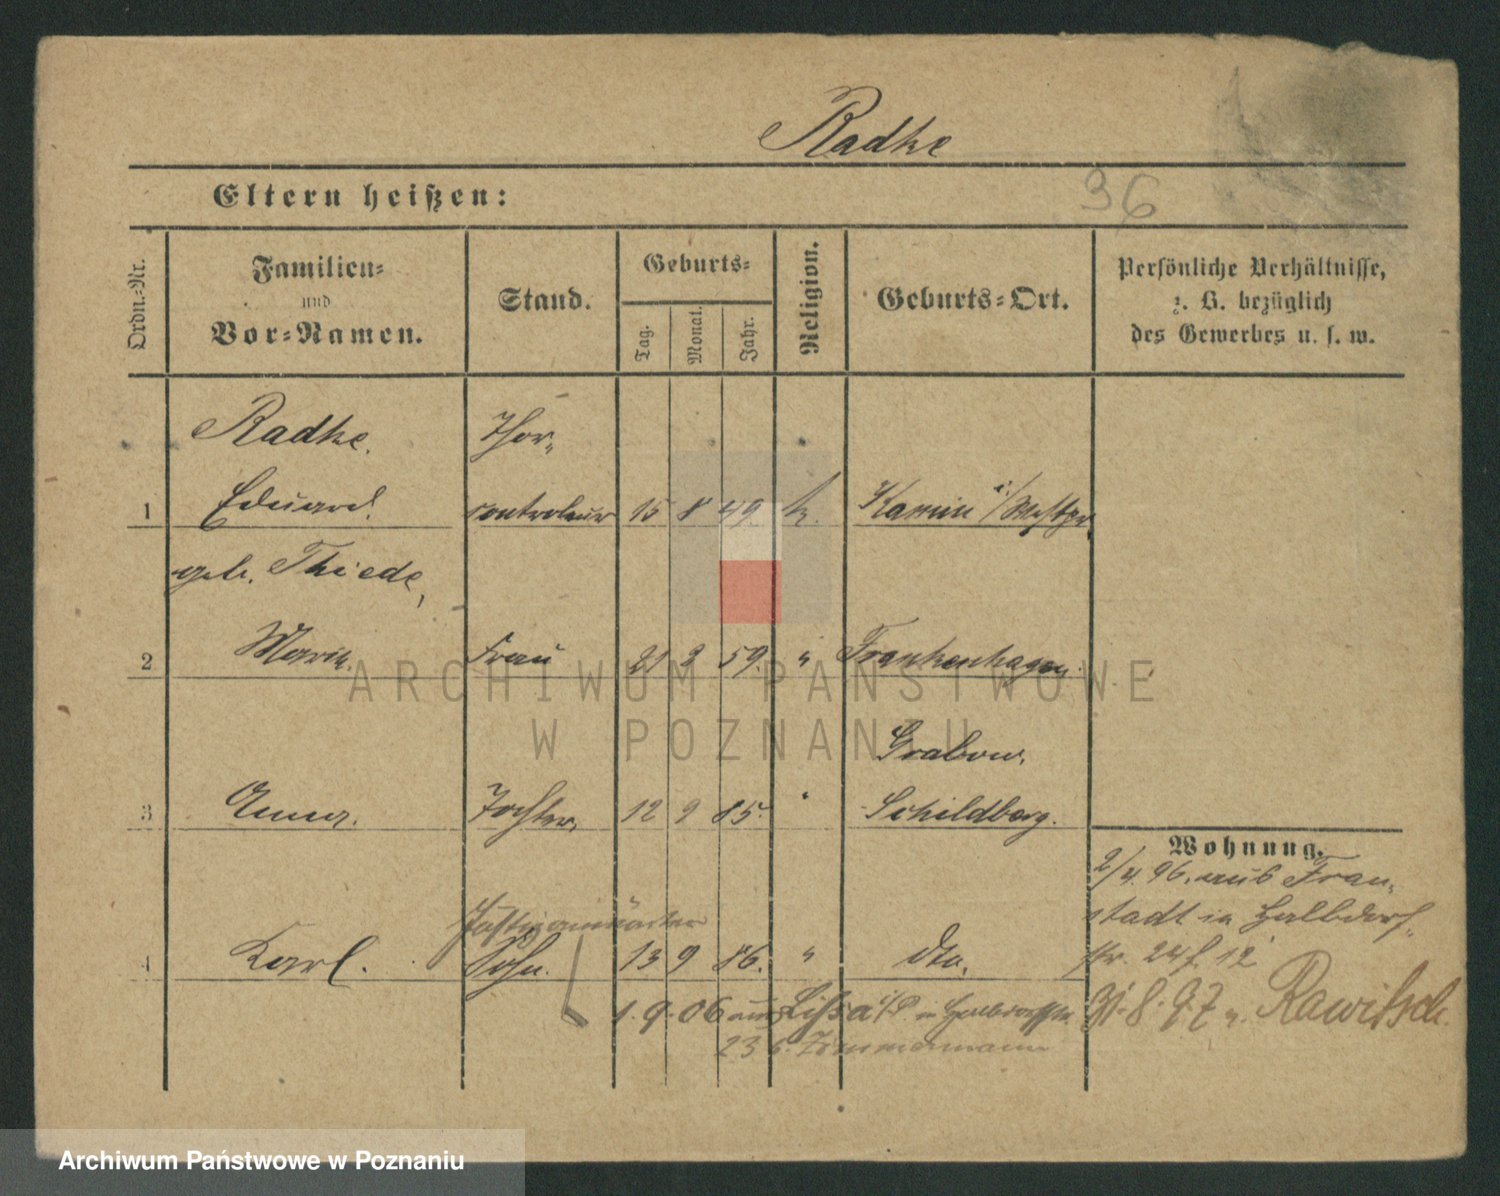 Radke
36
Eltern heißen:
Ordn.-Nr.
Familien-
und
Vor-Namen.
Stand.
Geburts-
Tag.
Monat.
Jahr.
Religion.
Geburts-Ort.
Persönliche Verhältnisse,
z. B. bezüglich
des Gewerbes u. s. w.
Radke, Thor-
1 Eduard. controleur 15 8 49. k. Kamin i/Westpr.
geb. Thiede,
2 Marie. Frau 21 2 59. " Frankenhagen.
Grabow,
3 Anna. Tochter, 12 9 85. " Schildberg.
Wohnung.
2/4. 96. aus Frau-
stadt in Halbdorf-
str. 24 f. 12
4 Karl. Sohn. 13 9 86. " dto.
1. 9. 06 aus Lissa i/P. in Halbdorfstr.
23 b. Zimmermann
31. 8. 97 n. Rawitsch.
ARCHIWUM PAŃSTWOWE
W POZNANIU
Archiwum Państwowe w Poznaniu